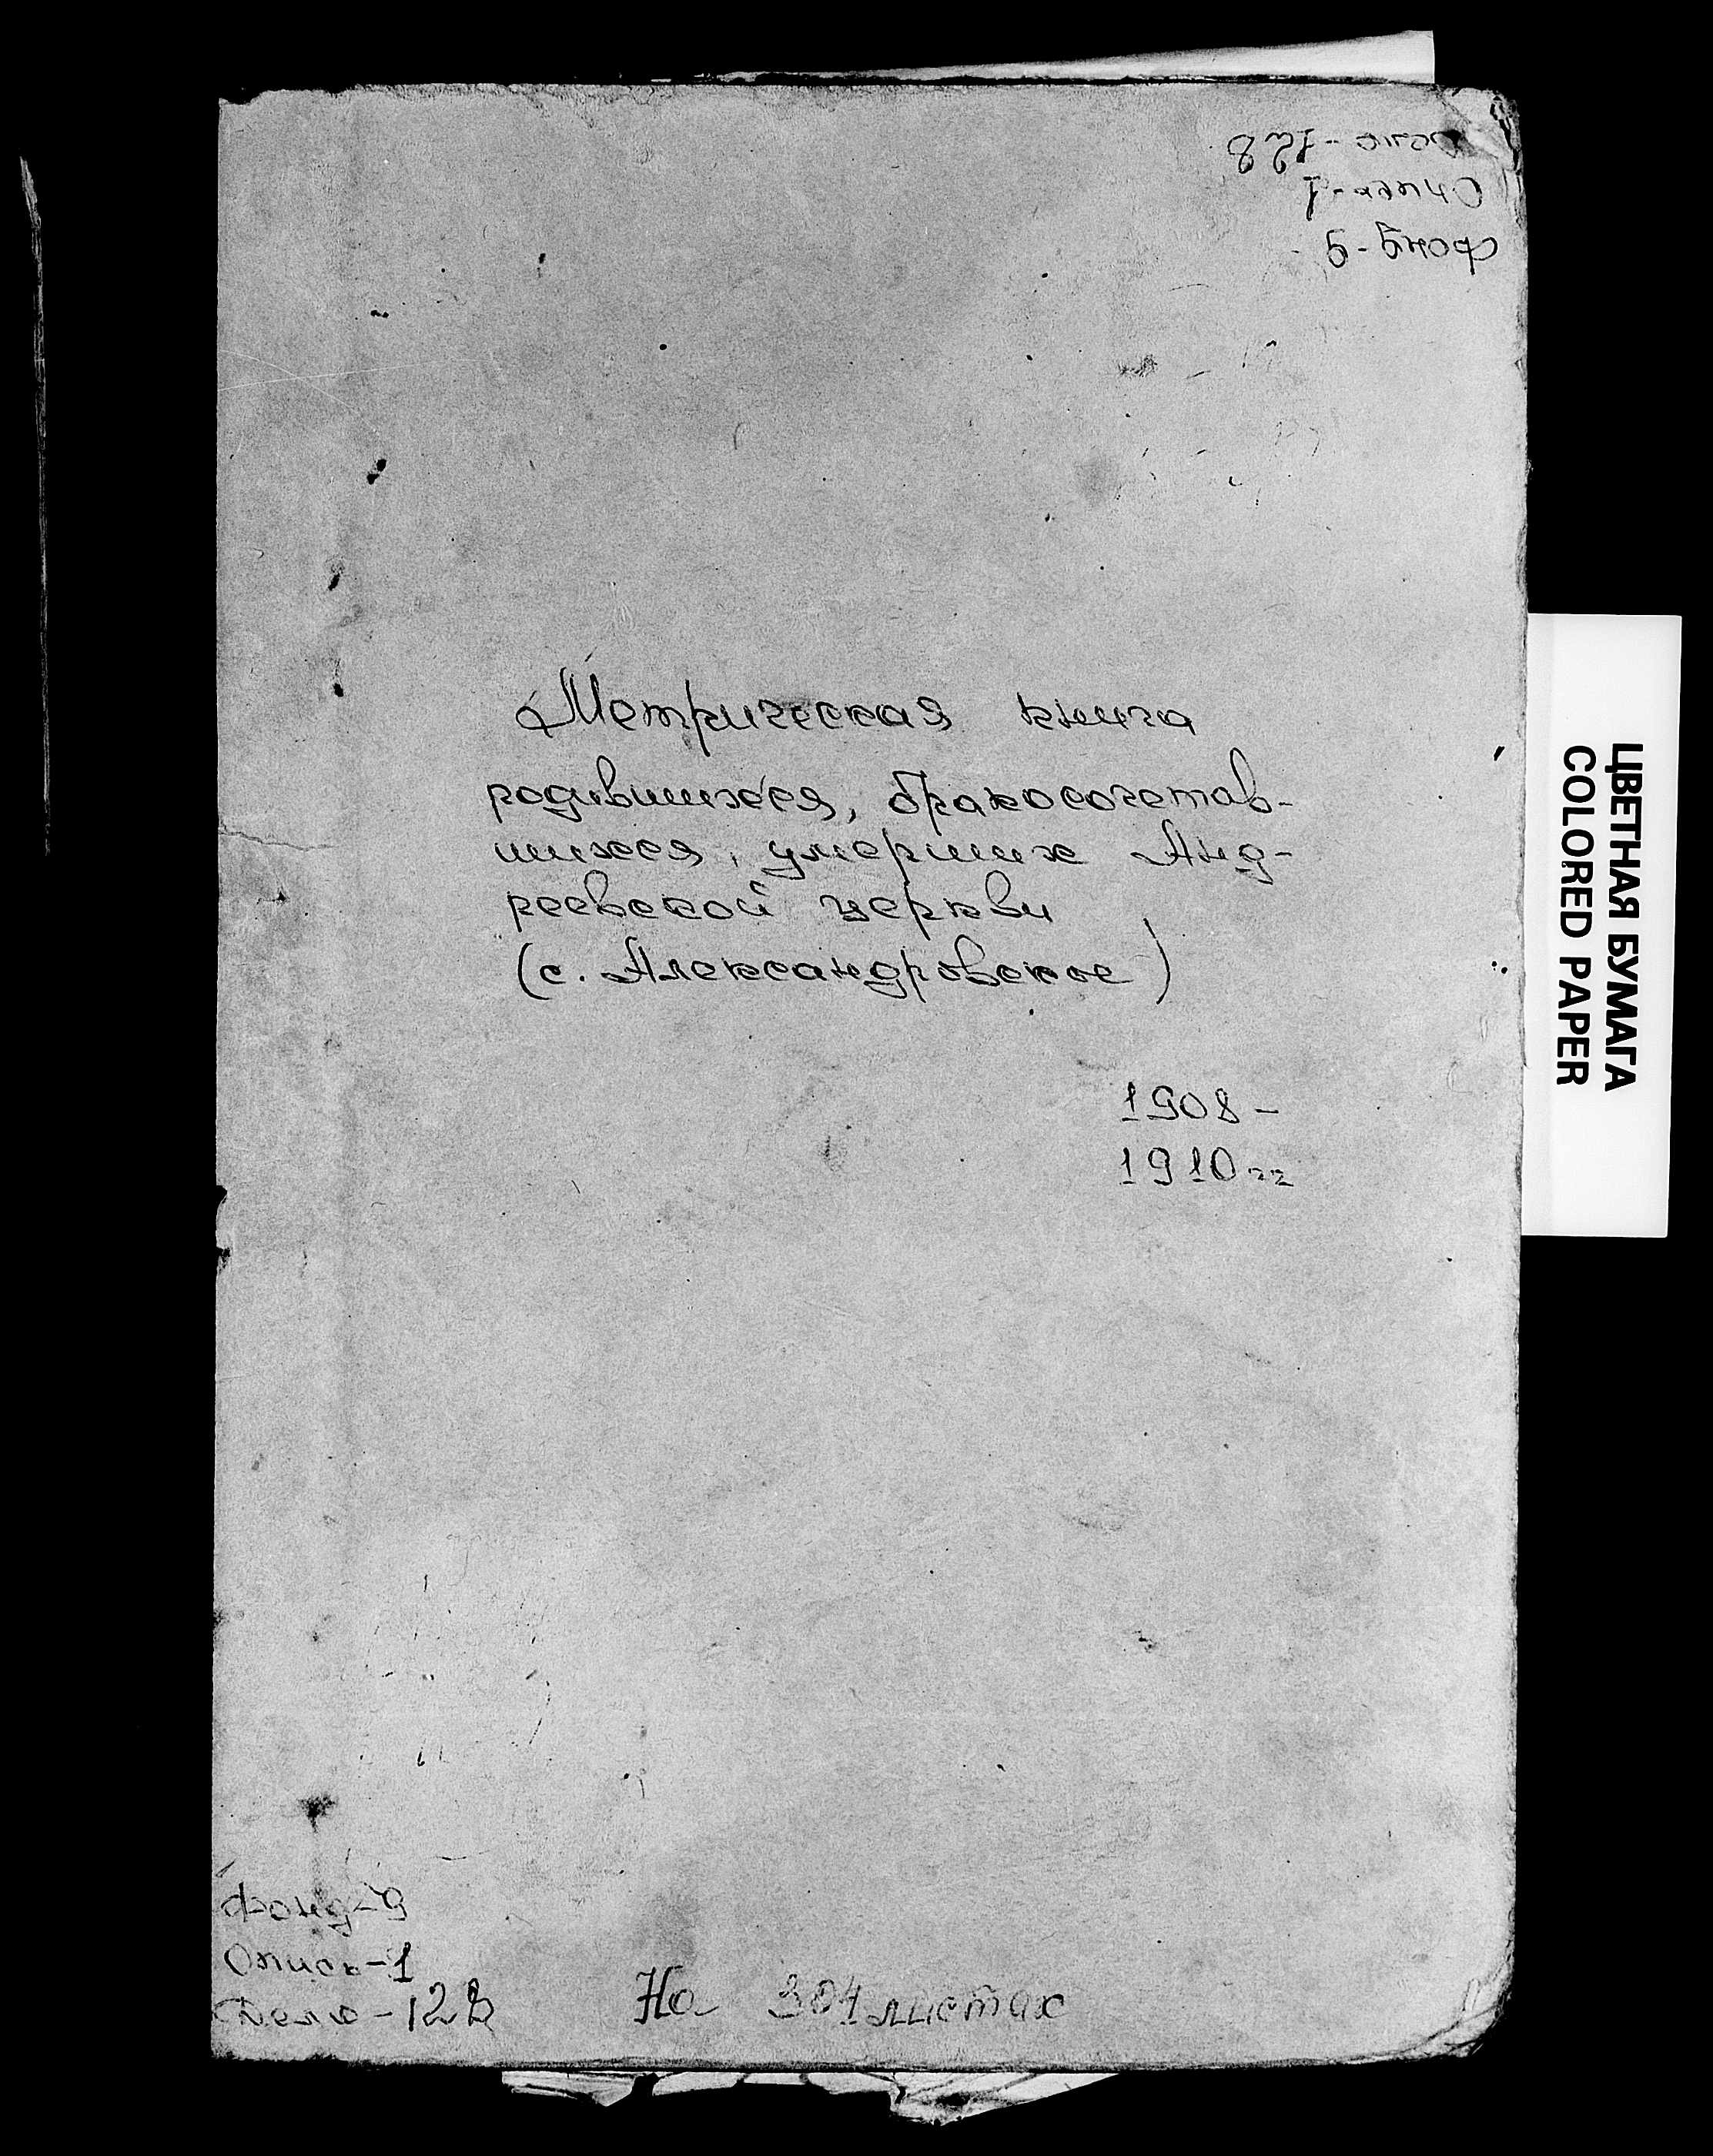 Дело - 128
Опись - 1
Фонд - 9
Метрическая книга
родившихся, бракосочетав-
шихся, умерших Анд-
реевской церкви
(с. Александровское)
1908 -
1910 гг
ЦВЕТНАЯ БУМАГА
COLORED PAPER
Фонд - 9
Опись - 1
Дело - 128
На 304 листах